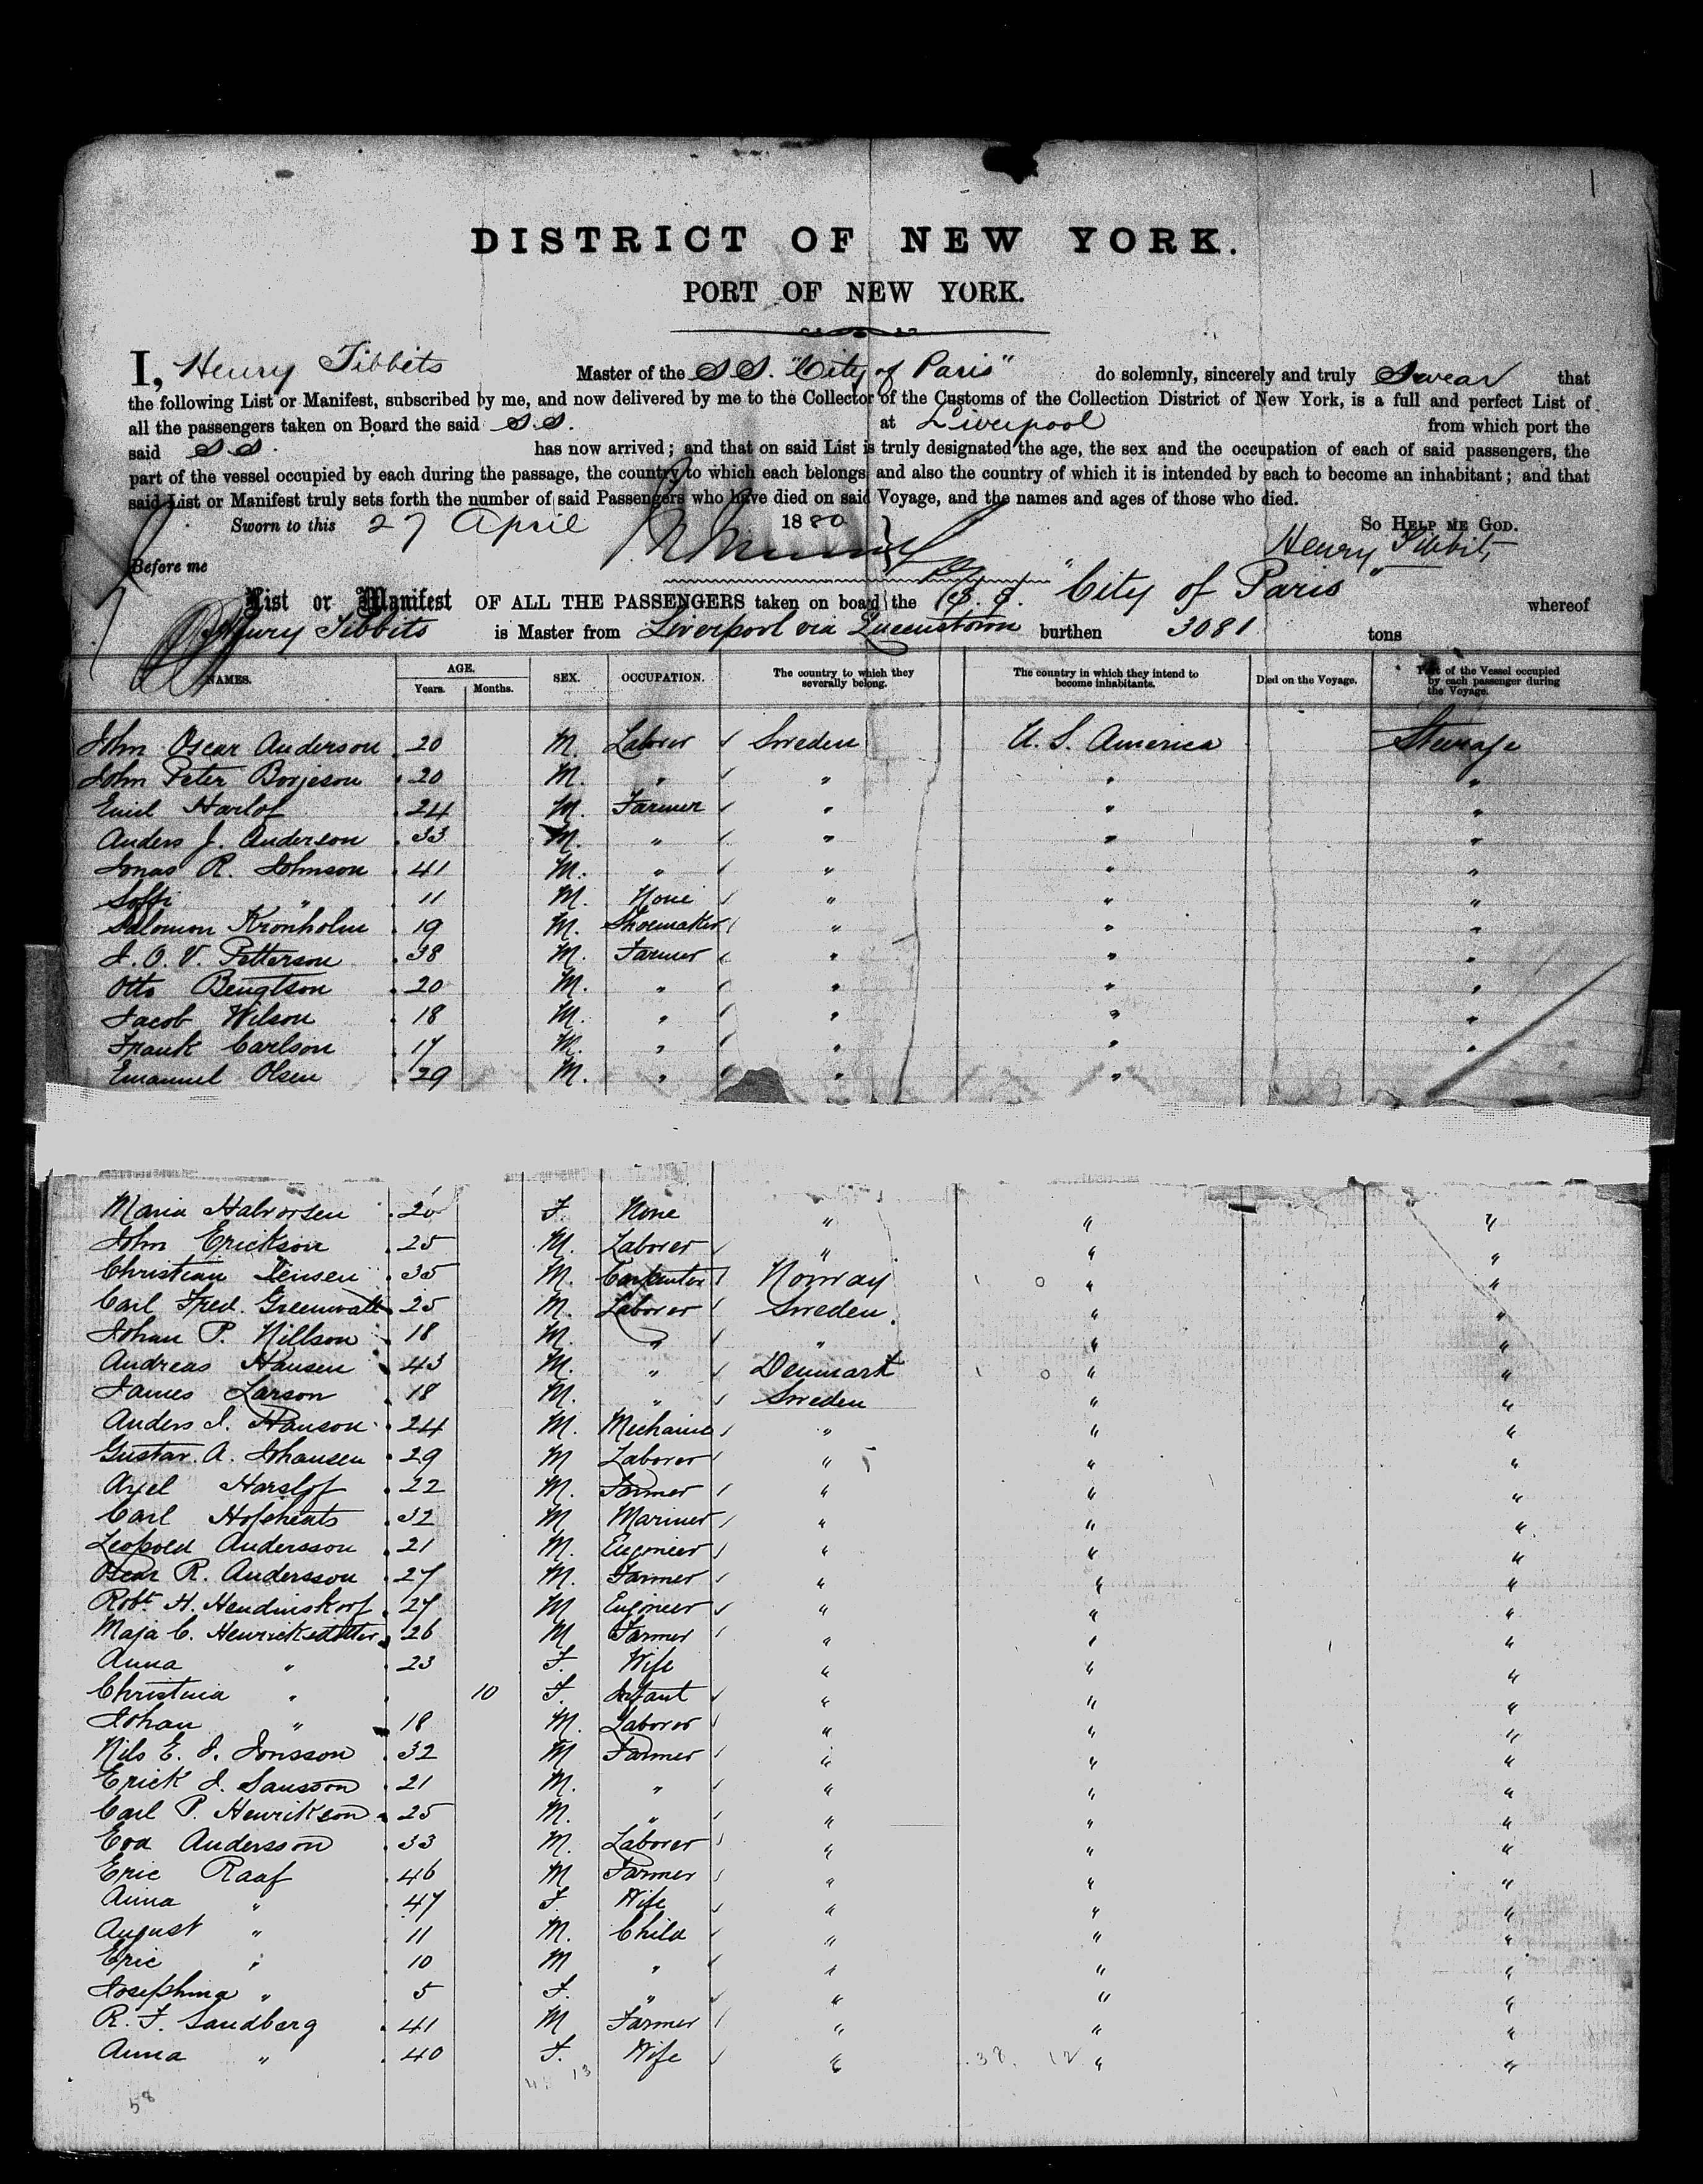 DISTRICT OF NEW YORK.
PORT OF NEW YORK.
I, Henry Tibbits Master of the S.S. "City of Paris" do solemnly, sincerely and truly Swear that
the following List or Manifest, subscribed by me, and now delivered by me to the Collector of the Customs of the Collection District of New York, is a full and perfect List of
all the passengers taken on Board the said S.S. at Liverpool from which port the
said S.S. has now arrived; and that on said List is truly designated the age, the sex and the occupation of each of said passengers, the
part of the vessel occupied by each during the passage, the country to which each belongs, and also the country of which it is intended by each to become an inhabitant; and that
said List or Manifest truly sets forth the number of said Passengers who have died on said Voyage, and the names and ages of those who died.
Sworn to this 27 April 1880 So HELP ME GOD.
Henry Tibbits
Before me
List or Manifest OF ALL THE PASSENGERS taken on board the S.S. "City of Paris" whereof
Henry Tibbits is Master from Liverpool via Queenstown burthen 3081 tons
NAMES. AGE. Years. Months. SEX. OCCUPATION. The country to which they severally belong. The country in which they intend to become inhabitants. Died on the Voyage. Part of the Vessel occupied by each passenger during the Voyage.
John Oscar Anderson 20 M. Laborer Sweden U. S. America Steerage
John Peter Borjeson 20 M. " " " "
Emil Harlof 24 M. Farmer " " "
Anders J. Anderson 33 M. " " " "
Jonas R. Johnson 41 M. " " " "
Soffi " 11 M. None " " "
Salomon Kronholm 19 M. Shoemaker " " "
J. O. V. Petterson 38 M. Farmer " " "
Otto Bengtson 20 M. " " " "
Jacob Wilson 18 M. " " " "
Frank Carlson 17 M. " " " "
Emanuel Olsen 29 M. " " "
Maria Halvorsen 20 F. None " " "
John Erickson 25 M. Laborer " " "
Christian Jensen 35 M. Carpenter Norway " "
Carl Fred. Greenwall 25 M. Laborer Sweden. " "
Johan P. Nillson 18 M. " " " "
Andreas Hansen 43 M. " Denmark " "
James Larson 18 M. " Sweden " "
Anders J. Hanson 24 M. Mechanic " " "
Gustav. A. Johansen 29 M Laborer " " "
Axel Harslof 22 M. Farmer " " "
Carl 32 M Mariner " " "
Leopold Andersson 21 M. Engineer " " "
Oscar R. Andersson 27 M. Farmer " " "
Robt. H. 27 M Engineer " " "
Maja C. Henricksdotter 26 M Farmer " " "
Anna " 23 F. Wife " " "
Christina " 10 F. Infant " " "
Johan " 18 M. Laborer " " "
Nils E. J. Jonsson 32 M Farmer " " "
Erick J. Sansson 21 M. " " " "
Carl P. Henrikson 25 M. " " " "
Eva Andersson 33 M. Laborer " " "
Eric Raaf 46 M Farmer " " "
Anna " 47 F. Wife " " "
August " 11 M. Child " " "
Eric " 10 M " " " "
Josephina " 5 F. " " " "
R. F. Sandberg 41 M Farmer " " "
Anna " 40 F. Wife " " "
58